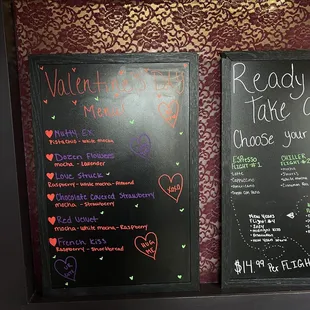 Valentine's Day
Menu
Nutty Ex
Pistachio - White mocha
Dozen Flowers
mocha - Lavender
Love Struck
Raspberry - White mocha - Almond
Chocolate Covered Strawberry
mocha - Strawberry
Red Velvet
mocha - White mocha - Raspberry
French Kiss
Raspberry - Shortbread
XOXO
HUG
ME
Ready
Take
Choose your
Espresso
Flight #1
Latte
Cappuccino
Americano
Chiller
Flight #
White mocha
New Years
Flight #4
Midnight Kiss
$14.99 Per Fligh